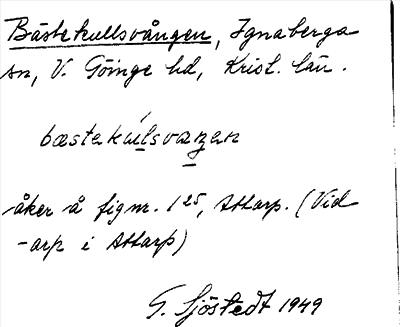 Bästekullsvången, Ignaberga
sn, V. Göinge hd, Krist. län.
bæstekúlsvaŋen
åker å fignr. 1²⁵, Attarp. (Vid
-arp i Attarp)
G. Sjöstedt 1949